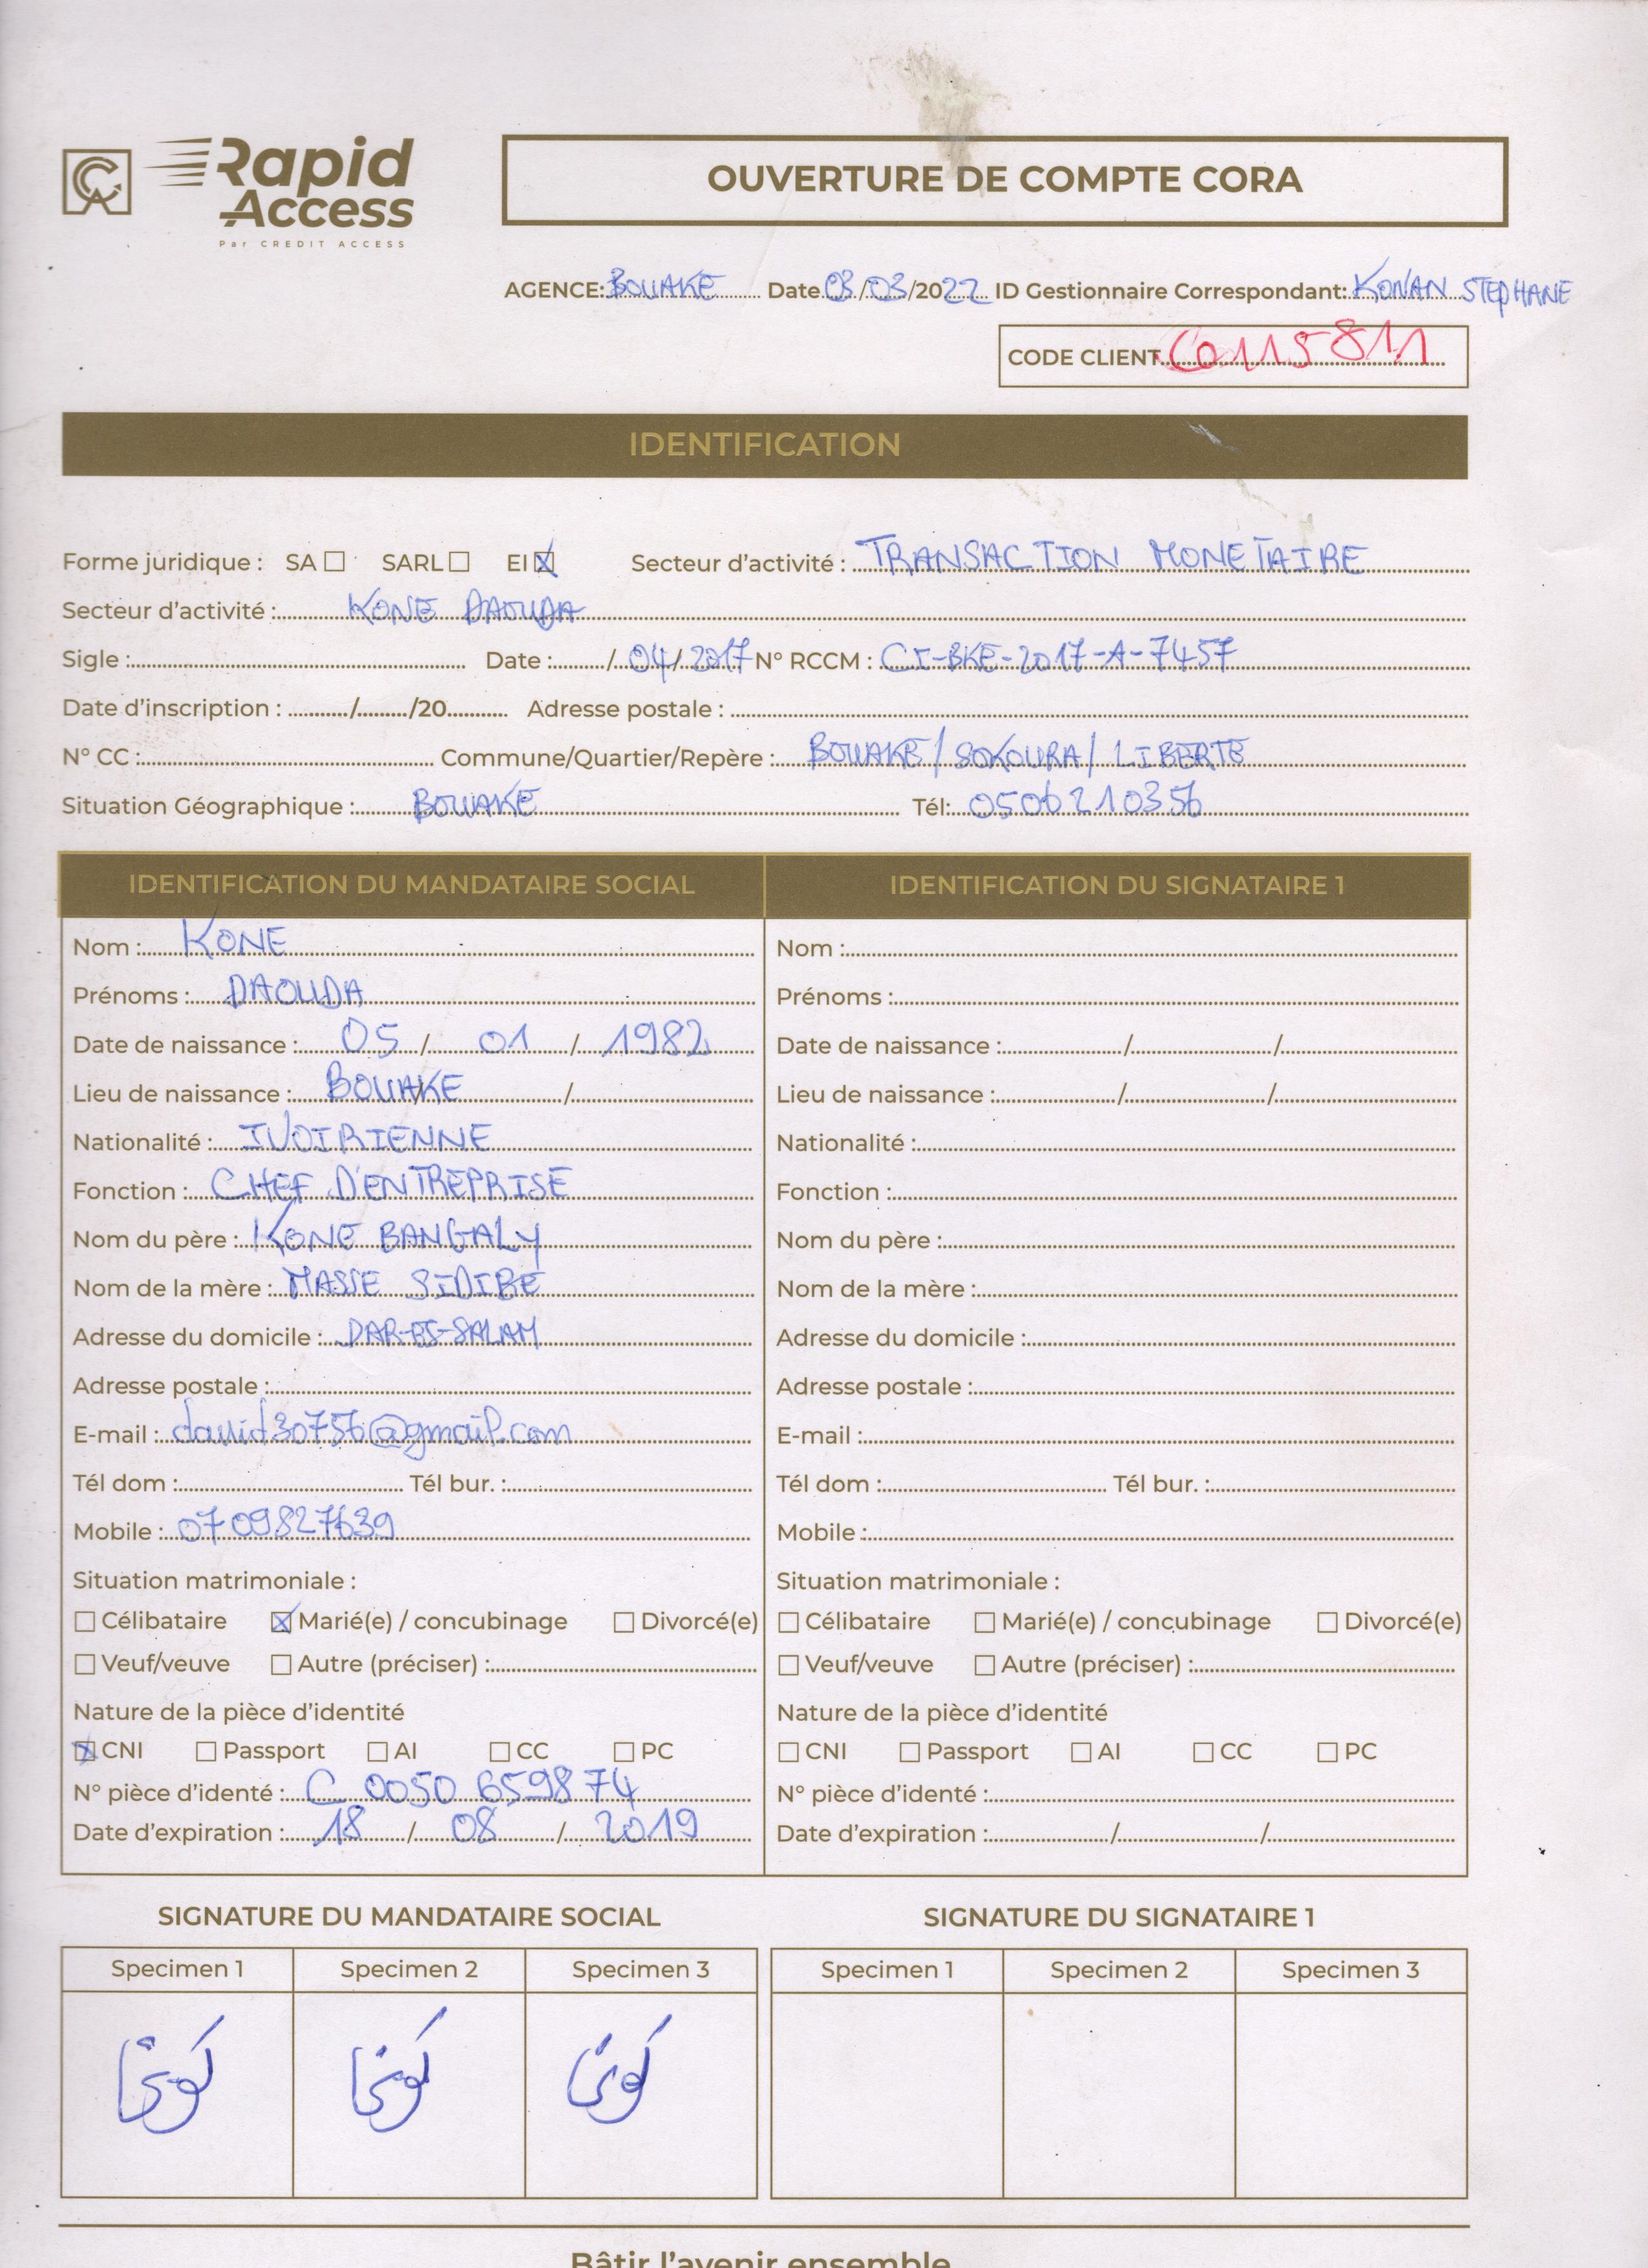 Rapid
Access
Par CREDIT ACCESS
OUVERTURE DE COMPTE CORA
AGENCE: BOUAKE Date 03/03/2022 ID Gestionnaire Correspondant: KONAN STEPHANE
CODE CLIENT C0115811
IDENTIFICATION
Forme juridique : SA ☐ SARL ☐ EI ☒ Secteur d'activité : TRANSACTION MONETAIRE
Secteur d'activité : KONE DAOUDA
Sigle : Date : / 04/ 2017 N° RCCM : CI-BKE-2017-A-7457
Date d'inscription : / /20 Adresse postale :
N° CC : Commune/Quartier/Repère : BOUAKE/ SOKOURA/ LIBERTE
Situation Géographique : BOUAKE Tél: 0506210356
IDENTIFICATION DU MANDATAIRE SOCIAL
Nom : KONE
Prénoms : DAOUDA
Date de naissance : 05 / 01 / 1982
Lieu de naissance : BOUAKE /
Nationalité : IVOIRIENNE
Fonction : CHEF D'ENTREPRISE
Nom du père : KONE BANGALY
Nom de la mère : MASSE SIDIBE
Adresse du domicile : DAR-ES-SALAM
Adresse postale :
E-mail : david30756@gmail.com
Tél dom : Tél bur. :
Mobile : 0709827639
Situation matrimoniale :
☐ Célibataire ☒ Marié(e) / concubinage ☐ Divorcé(e)
☐ Veuf/veuve ☐ Autre (préciser) :
Nature de la pièce d'identité
☒ CNI ☐ Passport ☐ AI ☐ CC ☐ PC
N° pièce d'identé : C 0050 6598 74
Date d'expiration : 18 / 08 / 2019
IDENTIFICATION DU SIGNATAIRE 1
Nom :
Prénoms :
Date de naissance : / /
Lieu de naissance : / /
Nationalité :
Fonction :
Nom du père :
Nom de la mère :
Adresse du domicile :
Adresse postale :
E-mail :
Tél dom : Tél bur. :
Mobile :
Situation matrimoniale :
☐ Célibataire ☐ Marié(e) / concubinage ☐ Divorcé(e)
☐ Veuf/veuve ☐ Autre (préciser) :
Nature de la pièce d'identité
☐ CNI ☐ Passport ☐ AI ☐ CC ☐ PC
N° pièce d'identé :
Date d'expiration : / /
SIGNATURE DU MANDATAIRE SOCIAL
Specimen 1 Specimen 2 Specimen 3
SIGNATURE DU SIGNATAIRE 1
Specimen 1 Specimen 2 Specimen 3
Bâtir l'avenir ensemble